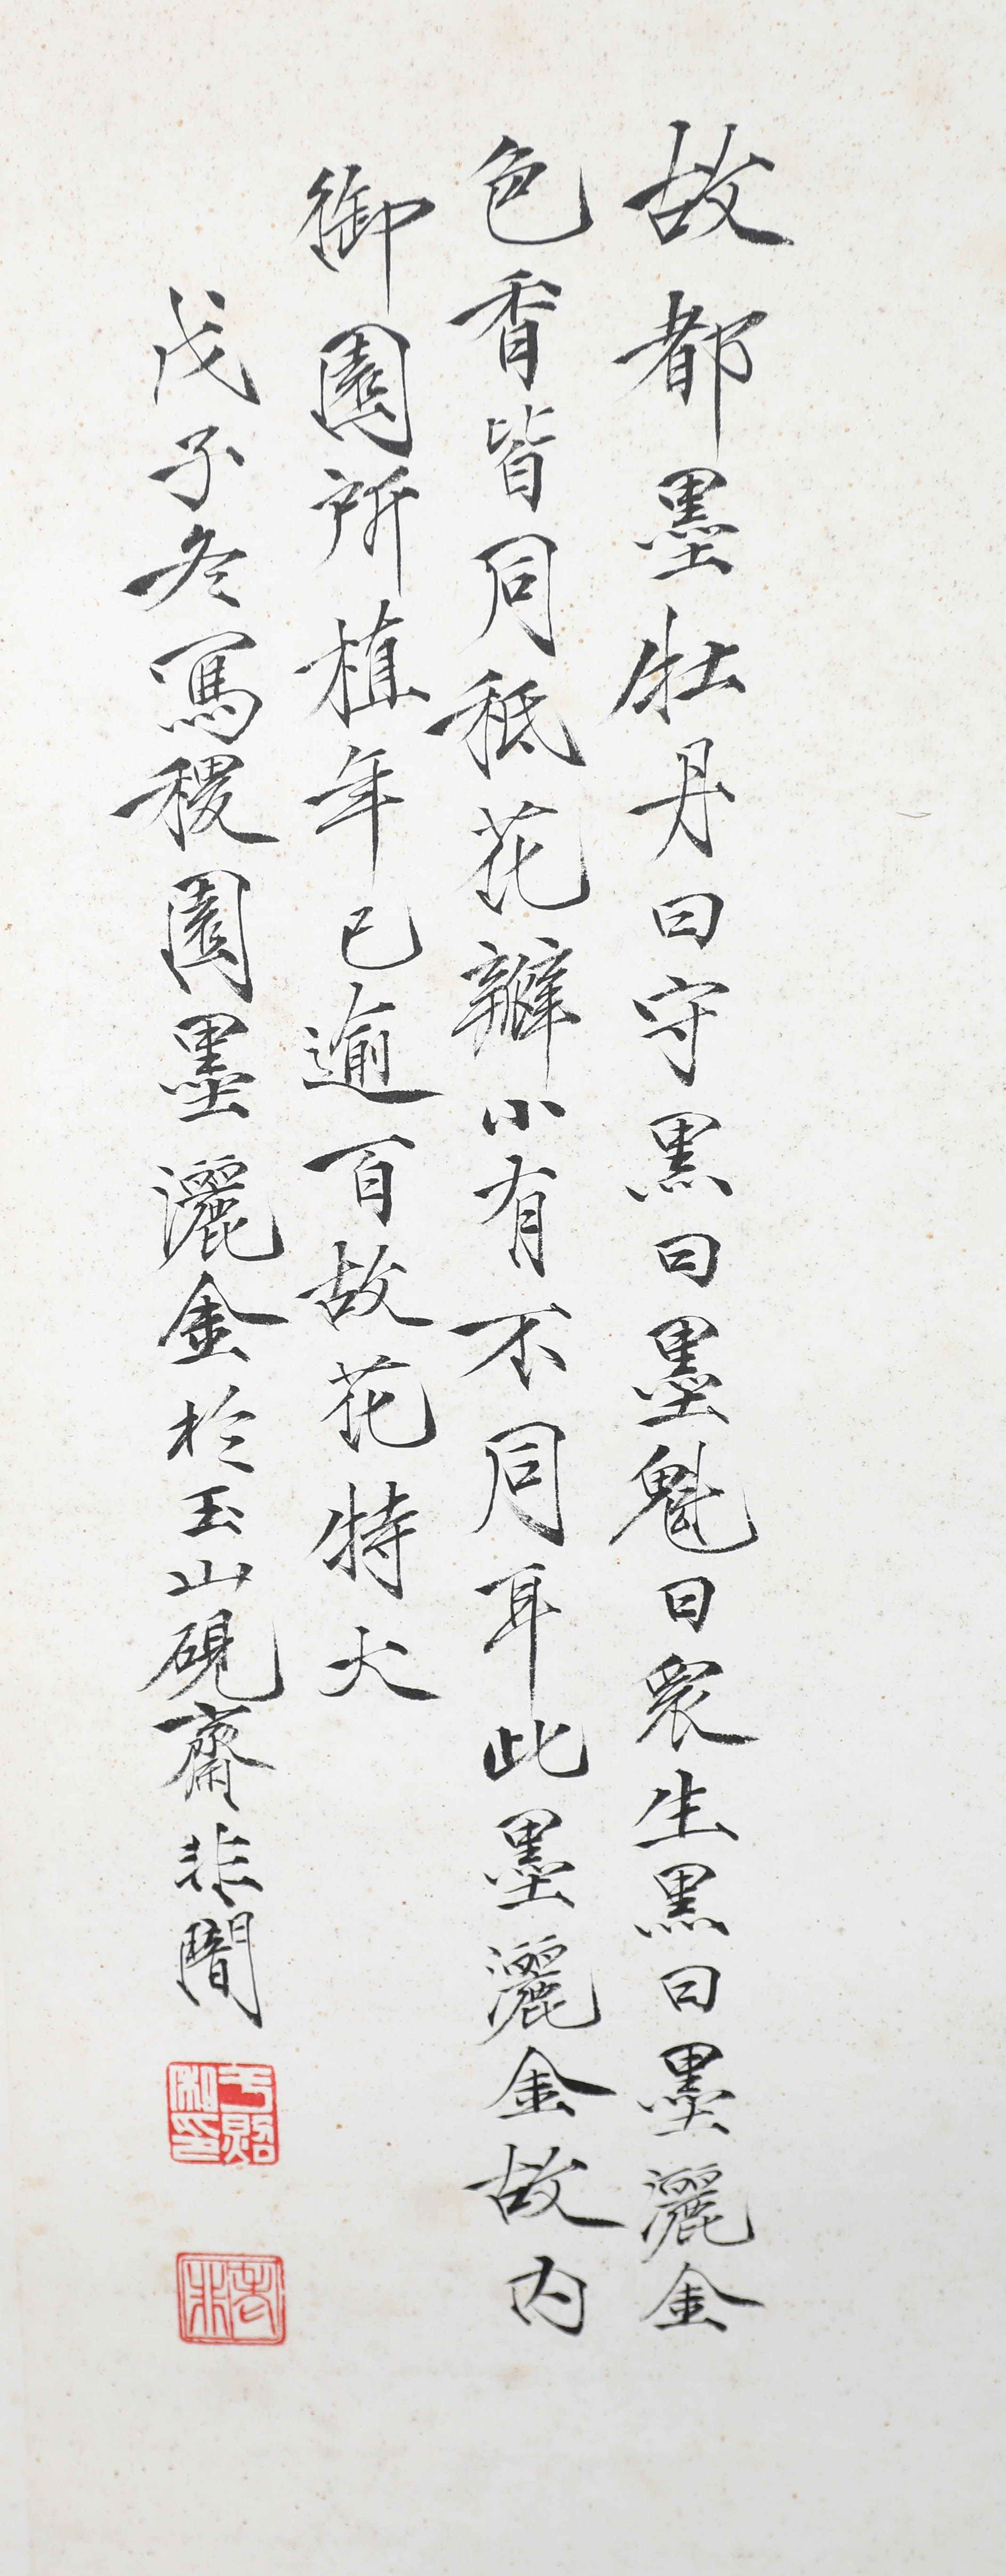 故都墨牡丹曰守黑曰墨魁曰衆生黑曰墨灑金
色香皆同秪花瓣小有不同耳此墨灑金故內
御園所植年已逾百故花特大
戊子冬寫稷園墨灑金於玉山硯齋非闇
于照私印
老非